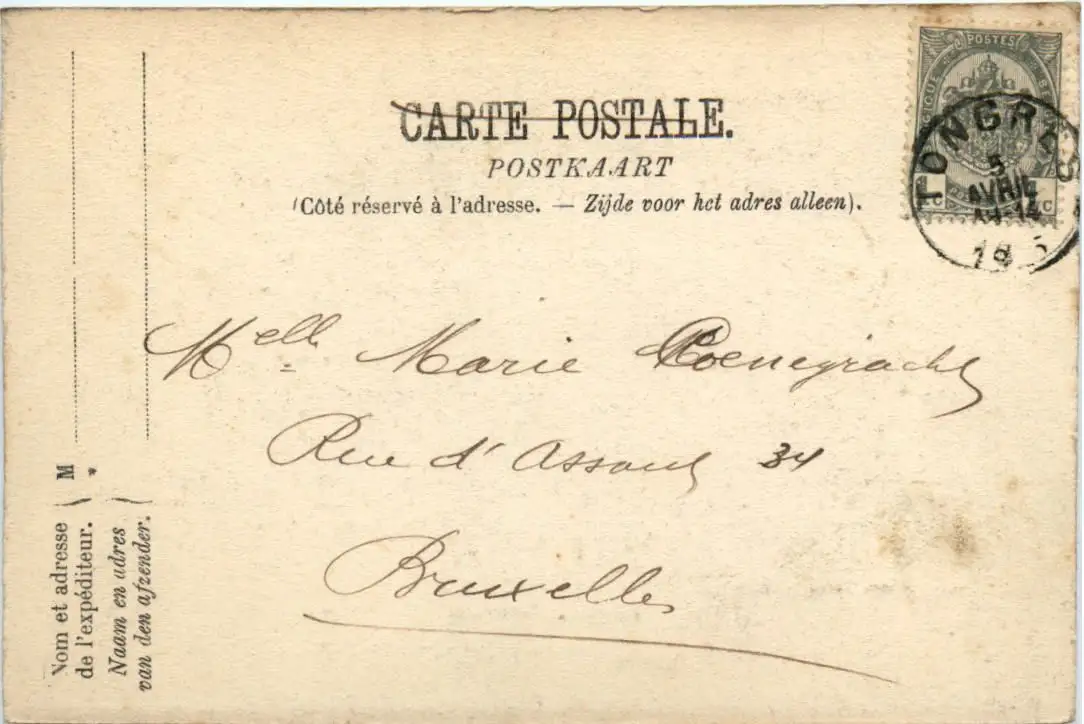 CARTE POSTALE.
POSTKAART
(Côté réservé à l'adresse. — Zijde voor het adres alleen).
POSTES
TONGRES
5
AVRIL
Melle Marie Coenegracht
Rue d'Assaut 34
Bruxelles
Nom et adresse
de l'expéditeur. } M
Naam en adres
van den afzender. } *